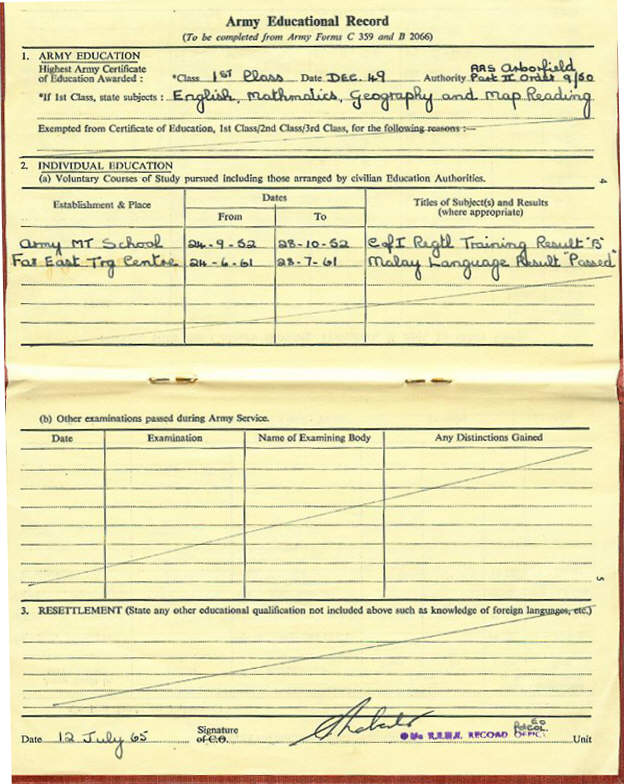 Army Educational Record
(To be completed from Army Forms C 359 and B 2066)
1. ARMY EDUCATION
Highest Army Certificate
of Education Awarded : *Class 1ST Class Date DEC. 49 Authority AAS Arborfield Part II Order 9/50
*If 1st Class, state subjects : English, Mathmatics, Geography and Map Reading
Exempted from Certificate of Education, 1st Class/2nd Class/3rd Class, for the following reasons :—
2. INDIVIDUAL EDUCATION
4
(a) Voluntary Courses of Study pursued including those arranged by civilian Education Authorities.
Establishment & Place Dates Titles of Subject(s) and Results
From To (where appropriate)
Army MT School 24-9-52 28-10-52 C of I Regtl Training Result "B"
Far East Trg Centre 24-6-61 28-7-61 Malay Language Result "Passed"
(b) Other examinations passed during Army Service.
Date Examination Name of Examining Body Any Distinctions Gained
5
3. RESETTLEMENT (State any other educational qualification not included above such as knowledge of foreign languages, etc.)
Date 12 July 65 Signature of C.O. R.E.M.E. RECORD OFFICE Unit